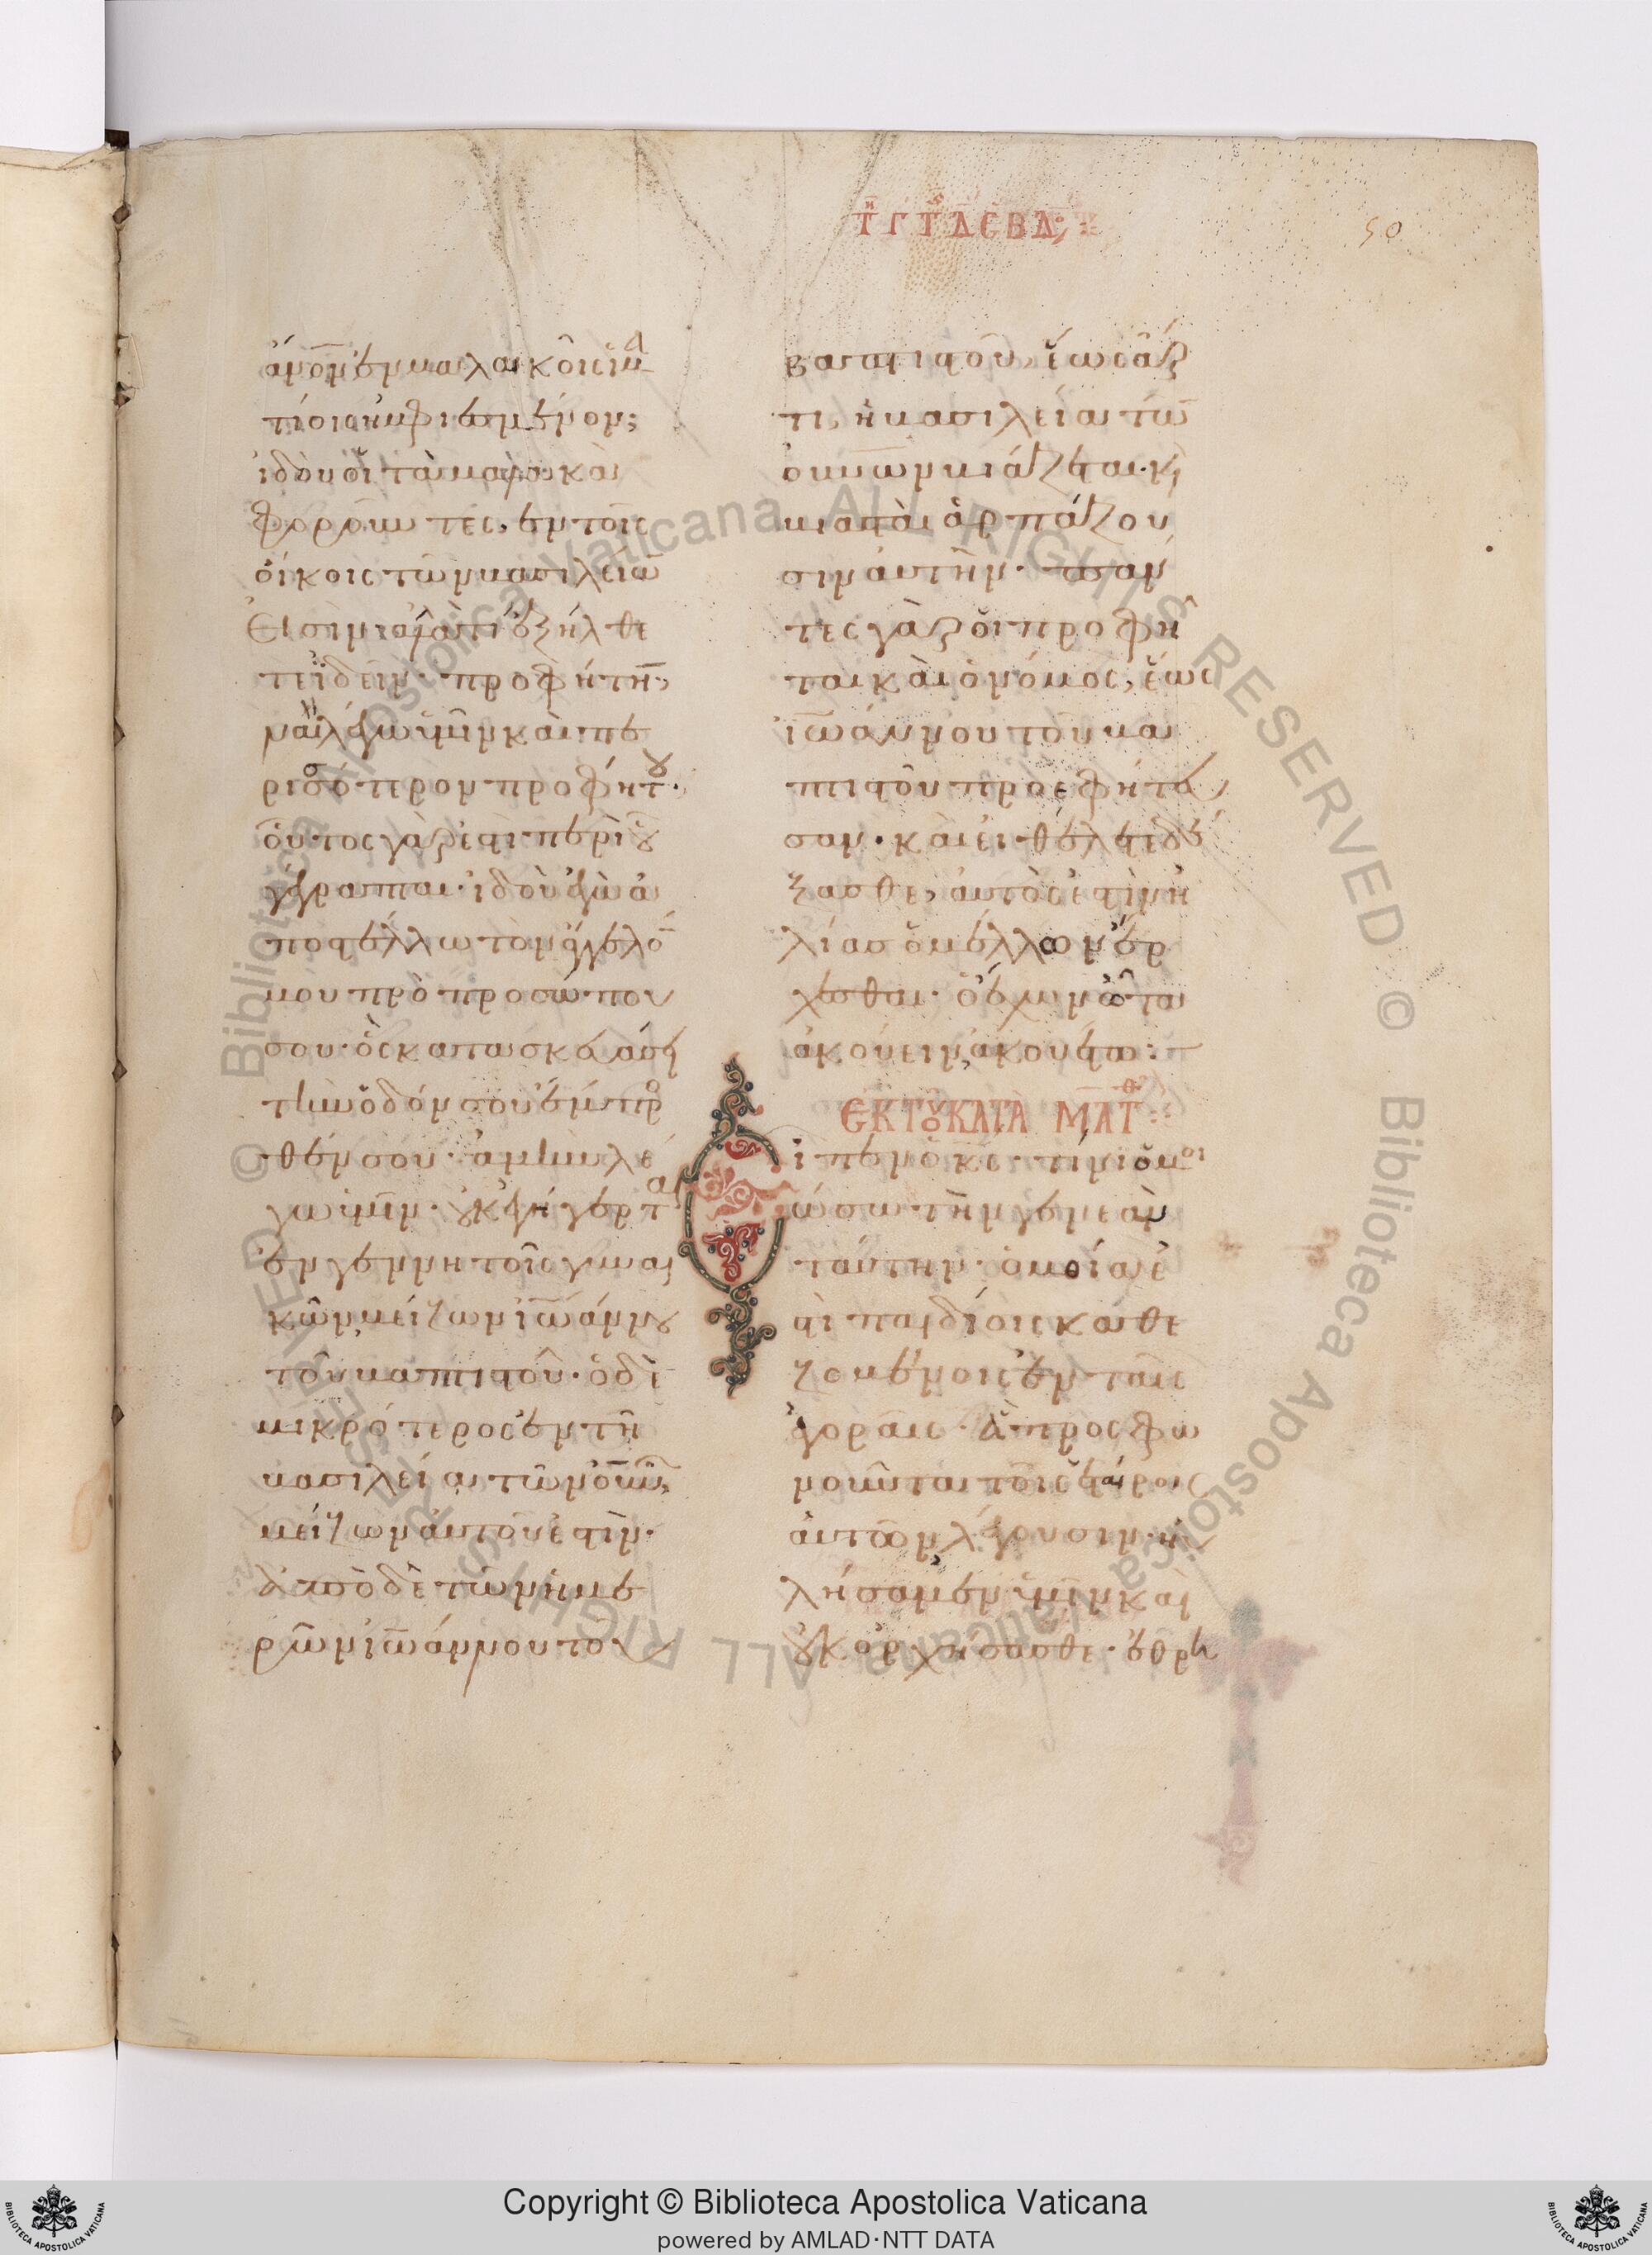 τῇ γ τῆς δ ἑβδ
50
ἄνον ἐν μαλακοῖς ἱμα
τίοις ἠμφιεσμένον;
ἰδοὺ οἱ τὰ μαλακὰ
φοροῦντες, ἐν τοῖς
οἴκοις τῶν βασιλείω̅
Εἰσίν· ἀλλὰ τί ἐξήλθε
τε ἰδεῖν· προφήτη̅;
ναὶ λέγω ὑμῖν καὶ πε
ρισσότερον προφήτου·
οὗτος γάρ ἐστι περὶ οὗ
γέγραπται· ἰδοὺ ἐγὼ ἀ
ποστέλλω τὸν ἄγγελό̅
μου πρὸ προσώπου
σου· ὃς κατασκευάσει
τὴν ὁδόν σου ἔμπρο
σθέν σου· ἀμὴν λέ
γω ὑμῖν· οὐκ ἐγήγερται
ἐν γεννητοῖς γυναι
κῶν μείζων ἰω̅άννου
τοῦ βαπτιστοῦ· ὁ δὲ
μικρότερος ἐν τῆ
βασιλεία τῶν οὐν̅ω̅ν,
μείζων αὐτοῦ ἐστίν·
ἀπὸ δὲ τῶν ἡμε
ρῶν ἰω̅άννου τοῦ
βαπτιστοῦ, ἕως ἄρ
τι, ἡ βασιλεία τῶν
οὐν̅ων βιάζεται· καὶ
βιασταὶ ἁρπάζου
σιν αὐτήν· πάν
τες γὰρ οἱ προφῆ
ται καὶ ὁ νόμος, ἕως
ἰω̅άννου τοῦ βα
πτιστοῦ προεφήτευ
σαν· καὶ εἰ θέλετε δέ
ξασθε, αὐτός ἐστιν ἡ
λίας ὁ μέλλων ἔρ
χεσθαι· ὁ ἔχων ὦτα
ἀκούειν ἀκουέτω:
ΕΚ ΤΟΥ ΚΑΤΑ ΜΑΤΘ
Εἶπεν ὁ κς̅· τίνι ὁμοι
ώσω τὴν γενεὰν
ταύτην· ὁμοία ἐ
στὶ παιδίοις καθε
ζομένοις ἐν ταῖς
ἀγοραῖς· ἃ προσφω
νοῦνται τοῖς ἑταίροις
αὐτῶν λέγουσιν· ηὐ
λήσαμεν ὑμῖν καὶ
οὐκ ὠρχήσασθε· ἐθρη
Copyright © Biblioteca Apostolica Vaticana
powered by AMLAD·NTT DATA